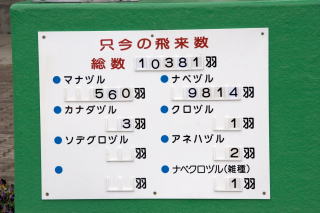 只今の飛来数
総数 10381羽
マナヅル ナベヅル
560羽 9814羽
カナダヅル クロヅル
3羽 1羽
ソデグロヅル アネハヅル
羽 2羽
ナベクロヅル(雑種)
羽 1羽